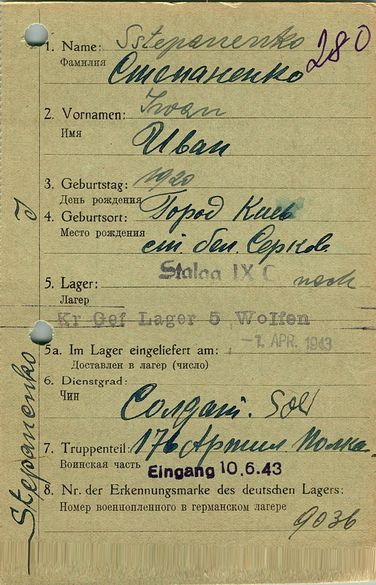 280
1. Name: Sstepanenko
Фамилия
Степаненко
2. Vornamen: Iwan
Имя
Иван
3. Geburtstag: 1920
День рождения
4. Geburtsort: Город Киев
Место рождения
ст бел. Серков
5. Lager: Stalag IX C nach
Лагер
Kr Gef Lager 5 Wolfen
-1. APR. 1943
5a. Im Lager eingeliefert am:
Доставлен в лагер (число)
6. Dienstgrad:
Чин
Солдат. Sol
7. Truppenteil: 176 Артил. Полка.
Воинская часть
Eingang 10.6.43
8. Nr. der Erkennungsmarke des deutschen Lagers:
Номер военнопленного в германском лагере
9036
Stepanenko J